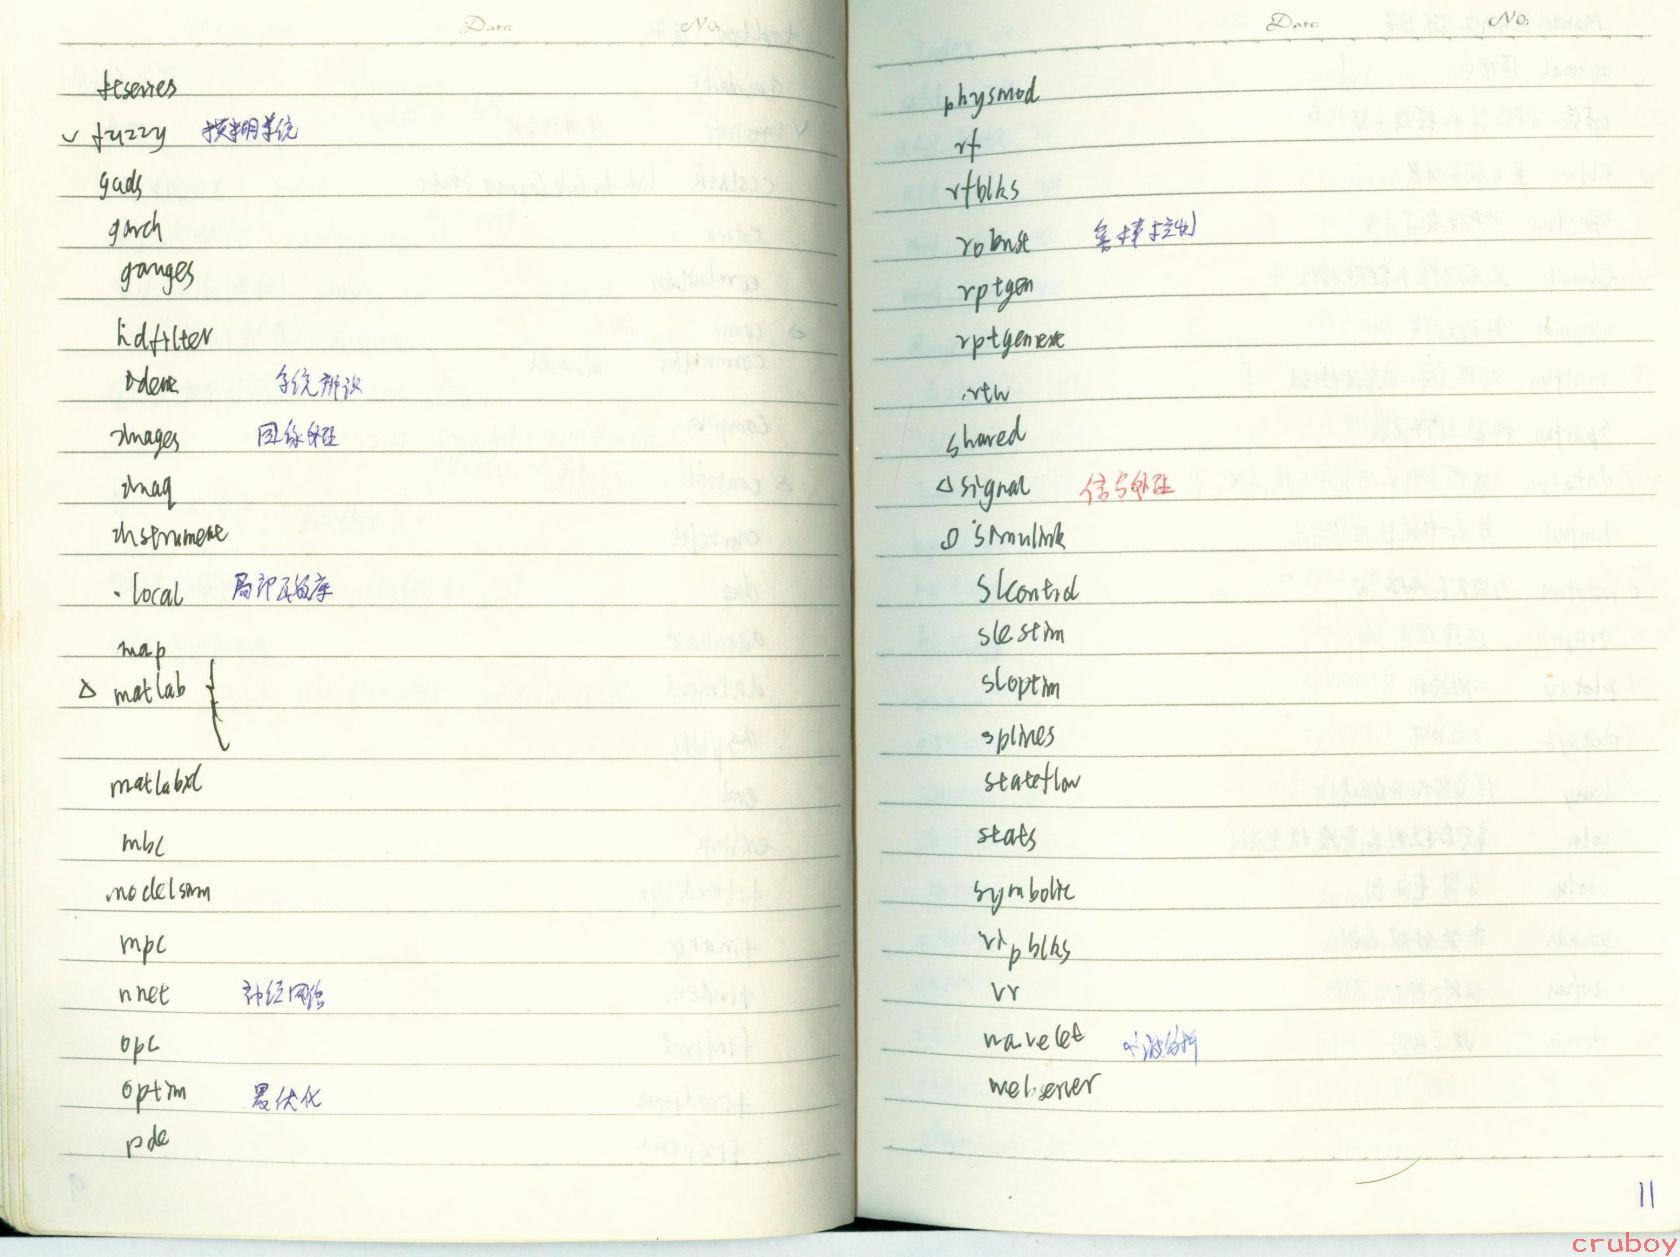 Date: No:
ftseries
✓ fuzzy 模糊系统
gads
garch
gauges
hdfilter
ident 系统辨识
images 图象处理
imaq
instrument
· local 局部函数库
map
△ matlab {
matlabxl
mbc
modelsim
mpc
nnet 神经网络
opc
optim 最优化
pde
Date: No:
physmod
rf
rfblks
robust 鲁棒控制
rptgen
rptgenext
rtw
shared
△ signal 信号处理
simulink
slcontrol
slestim
sloptim
splines
stateflow
stats
symbolic
vipblks
vr
wavelet 小波分析
webserver
11
cruboy